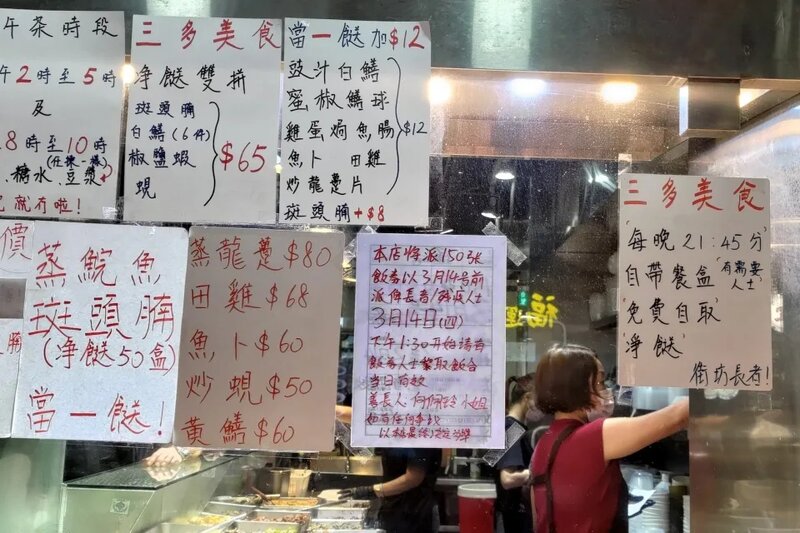 午茶時段
午2時至5時
及
8時至10時
糖水、豆漿
就有啦!
三多美食
凈餸雙拼
斑頭腩
白鱔(6件)
椒鹽蝦
蜆
$65
當一餸加$12
豉汁白鱔
蜜椒鱔球
雞蛋焗魚腸
魚卜 田雞
炒龍躉片
$12
斑頭腩+$8
價
腩
蒸鯇魚
斑頭腩
(凈餸50盒)
當一餸!
蒸龍躉$80
田雞$68
魚卜$60
炒蜆$50
黃鱔$60
本店將派150張
飯券以3月14號前
派俾長者/
3月14日(四)
下午1:30開始請者
飯券人士
當日有效
善長人 小姐
如有任何爭執
三多美食
每晚21:45分
自帶餐盒
有需要
人士
免費自取
凈餸
街坊長者!
福